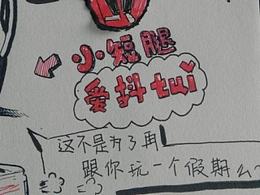 小短腿
爱抖tui
这不是为了再
跟你玩一个假期么